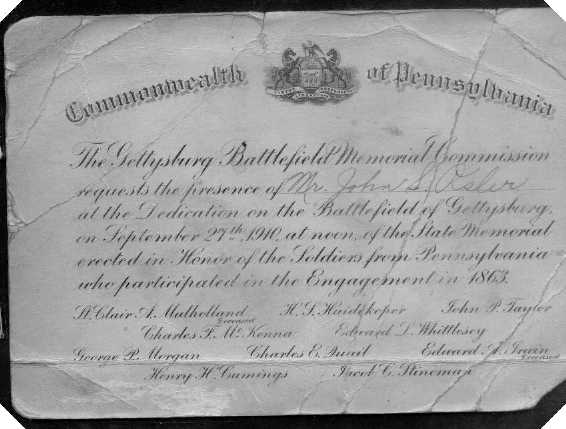 Commonwealth of Pennsylvania
The Gettysburg Battlefield Memorial Commission
requests the presence of Mr. John S. Osler
at the Dedication on the Battlefield of Gettysburg,
on September 27th, 1910, at noon, of the State Memorial
erected in Honor of the Soldiers from Pennsylvania
who participated in the Engagement in 1863.
St. Clair A. Mulholland H. S. Huidekoper John P. Taylor
Deceased
Charles F. McKenna Edward L. Whittlesey
George P. Morgan Charles E. Quail Edward A. Irvin
Deceased
Henry H. Cumings Jacob C. Stineman